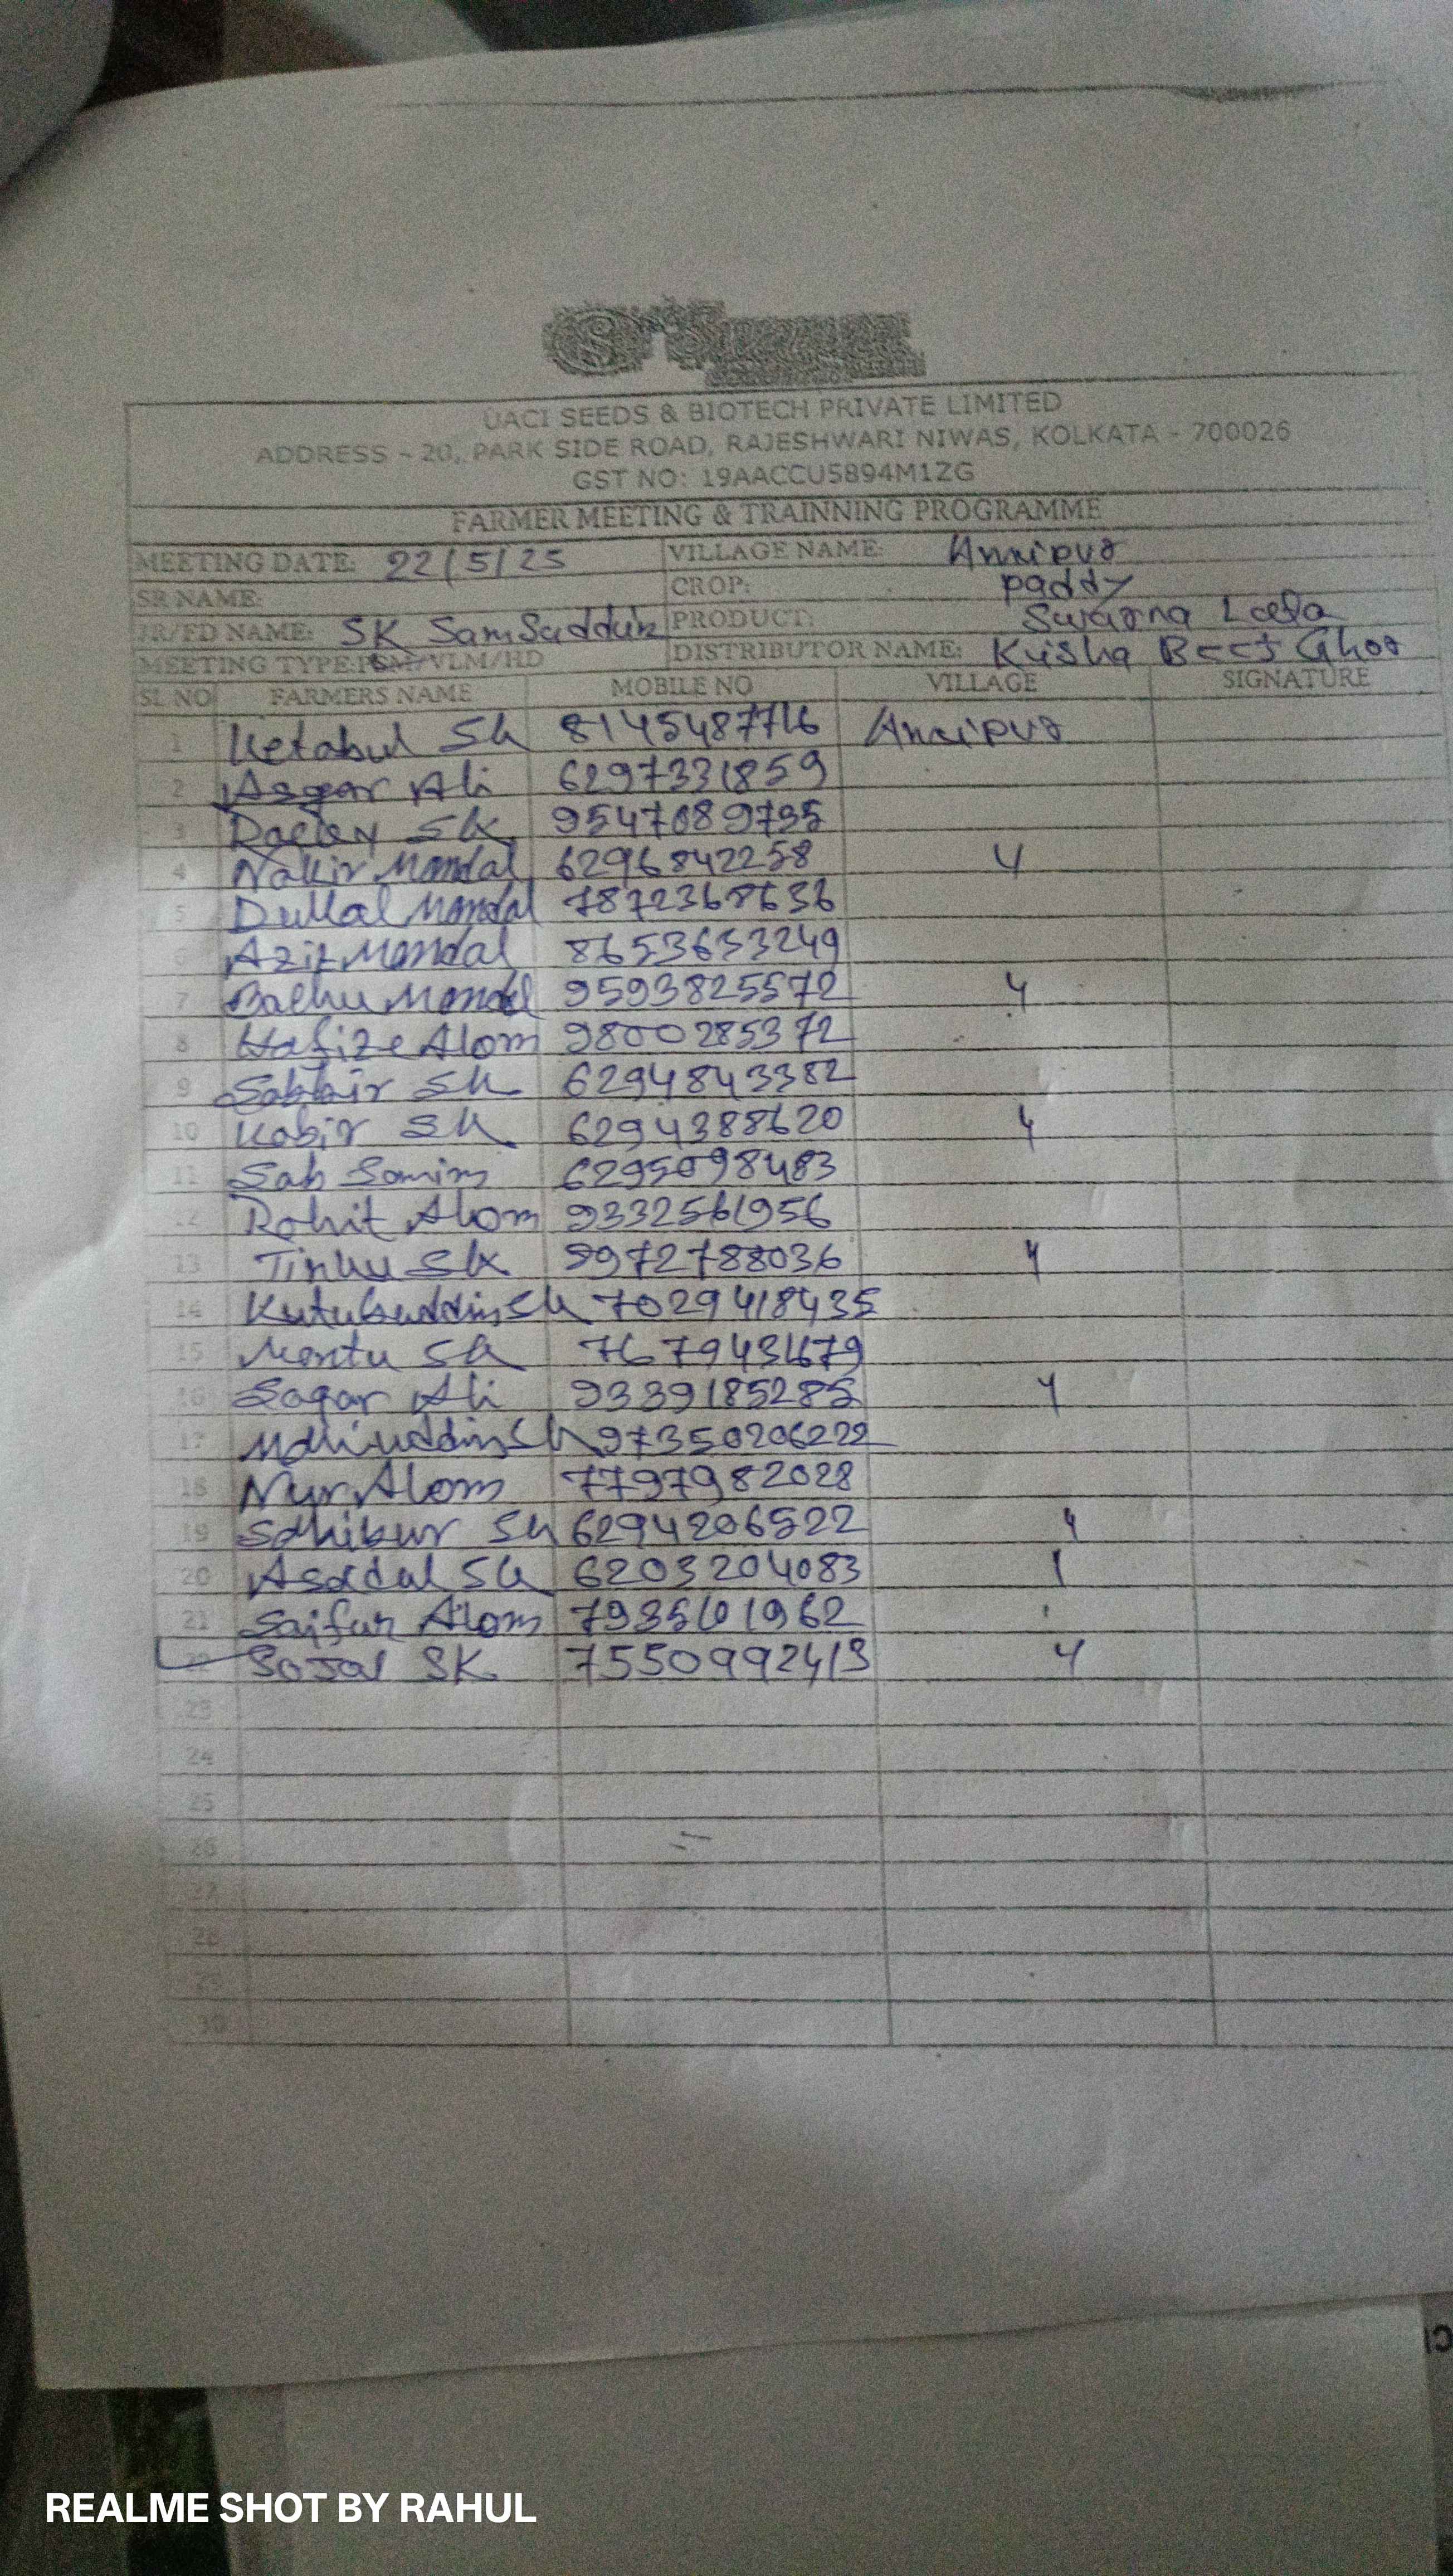 UACI SEEDS & BIOTECH PRIVATE LIMITED
ADDRESS - 20, PARK SIDE ROAD, RAJESHWARI NIWAS, KOLKATA - 700026
GST NO: 19AACCU5894M1ZG
FARMER MEETING & TRAINNING PROGRAMME
MEETING DATE: 22/5/25 VILLAGE NAME: Amripur
SR NAME: CROP: paddy
JR/FD NAME: SK Samsuddin PRODUCT: Swarna
MEETING TYPE: PSM/VLM/HD DISTRIBUTOR NAME: Krisha Beej Ghor
SL NO FARMERS NAME MOBILE NO VILLAGE SIGNATURE
1 Ketabul Sk Amripur
2 Asgar Ali 6297331859
3 SK 9547689735
4 Nakir Mondal 6296842258 4
5 Dullal Mondal 7872368636
6 Aziz Mondal 8653633249
7 Bachu Mondal 9593825572 4
8 Hafize Alom 9800285372
9 Sabbir Sk 6294843382
10 Kabir SK 6294388620 4
11 Sah Somim 6295098483
12 Rohit Alom 9332561956
13 Tinku SK 9972788036 4
14 Kutubuddin Sk 7029418435
15 Montu Sk
16 Sagar Ali 9339185285 4
17 Sk 97350206222
18 Nur Alom 7797982028
19 Sk 6294206522 4
20 Sk 6203204083
21 Alom
22 Sojal SK 7550992413 4
23
24
25
26
27
28
29
30
REALME SHOT BY RAHUL